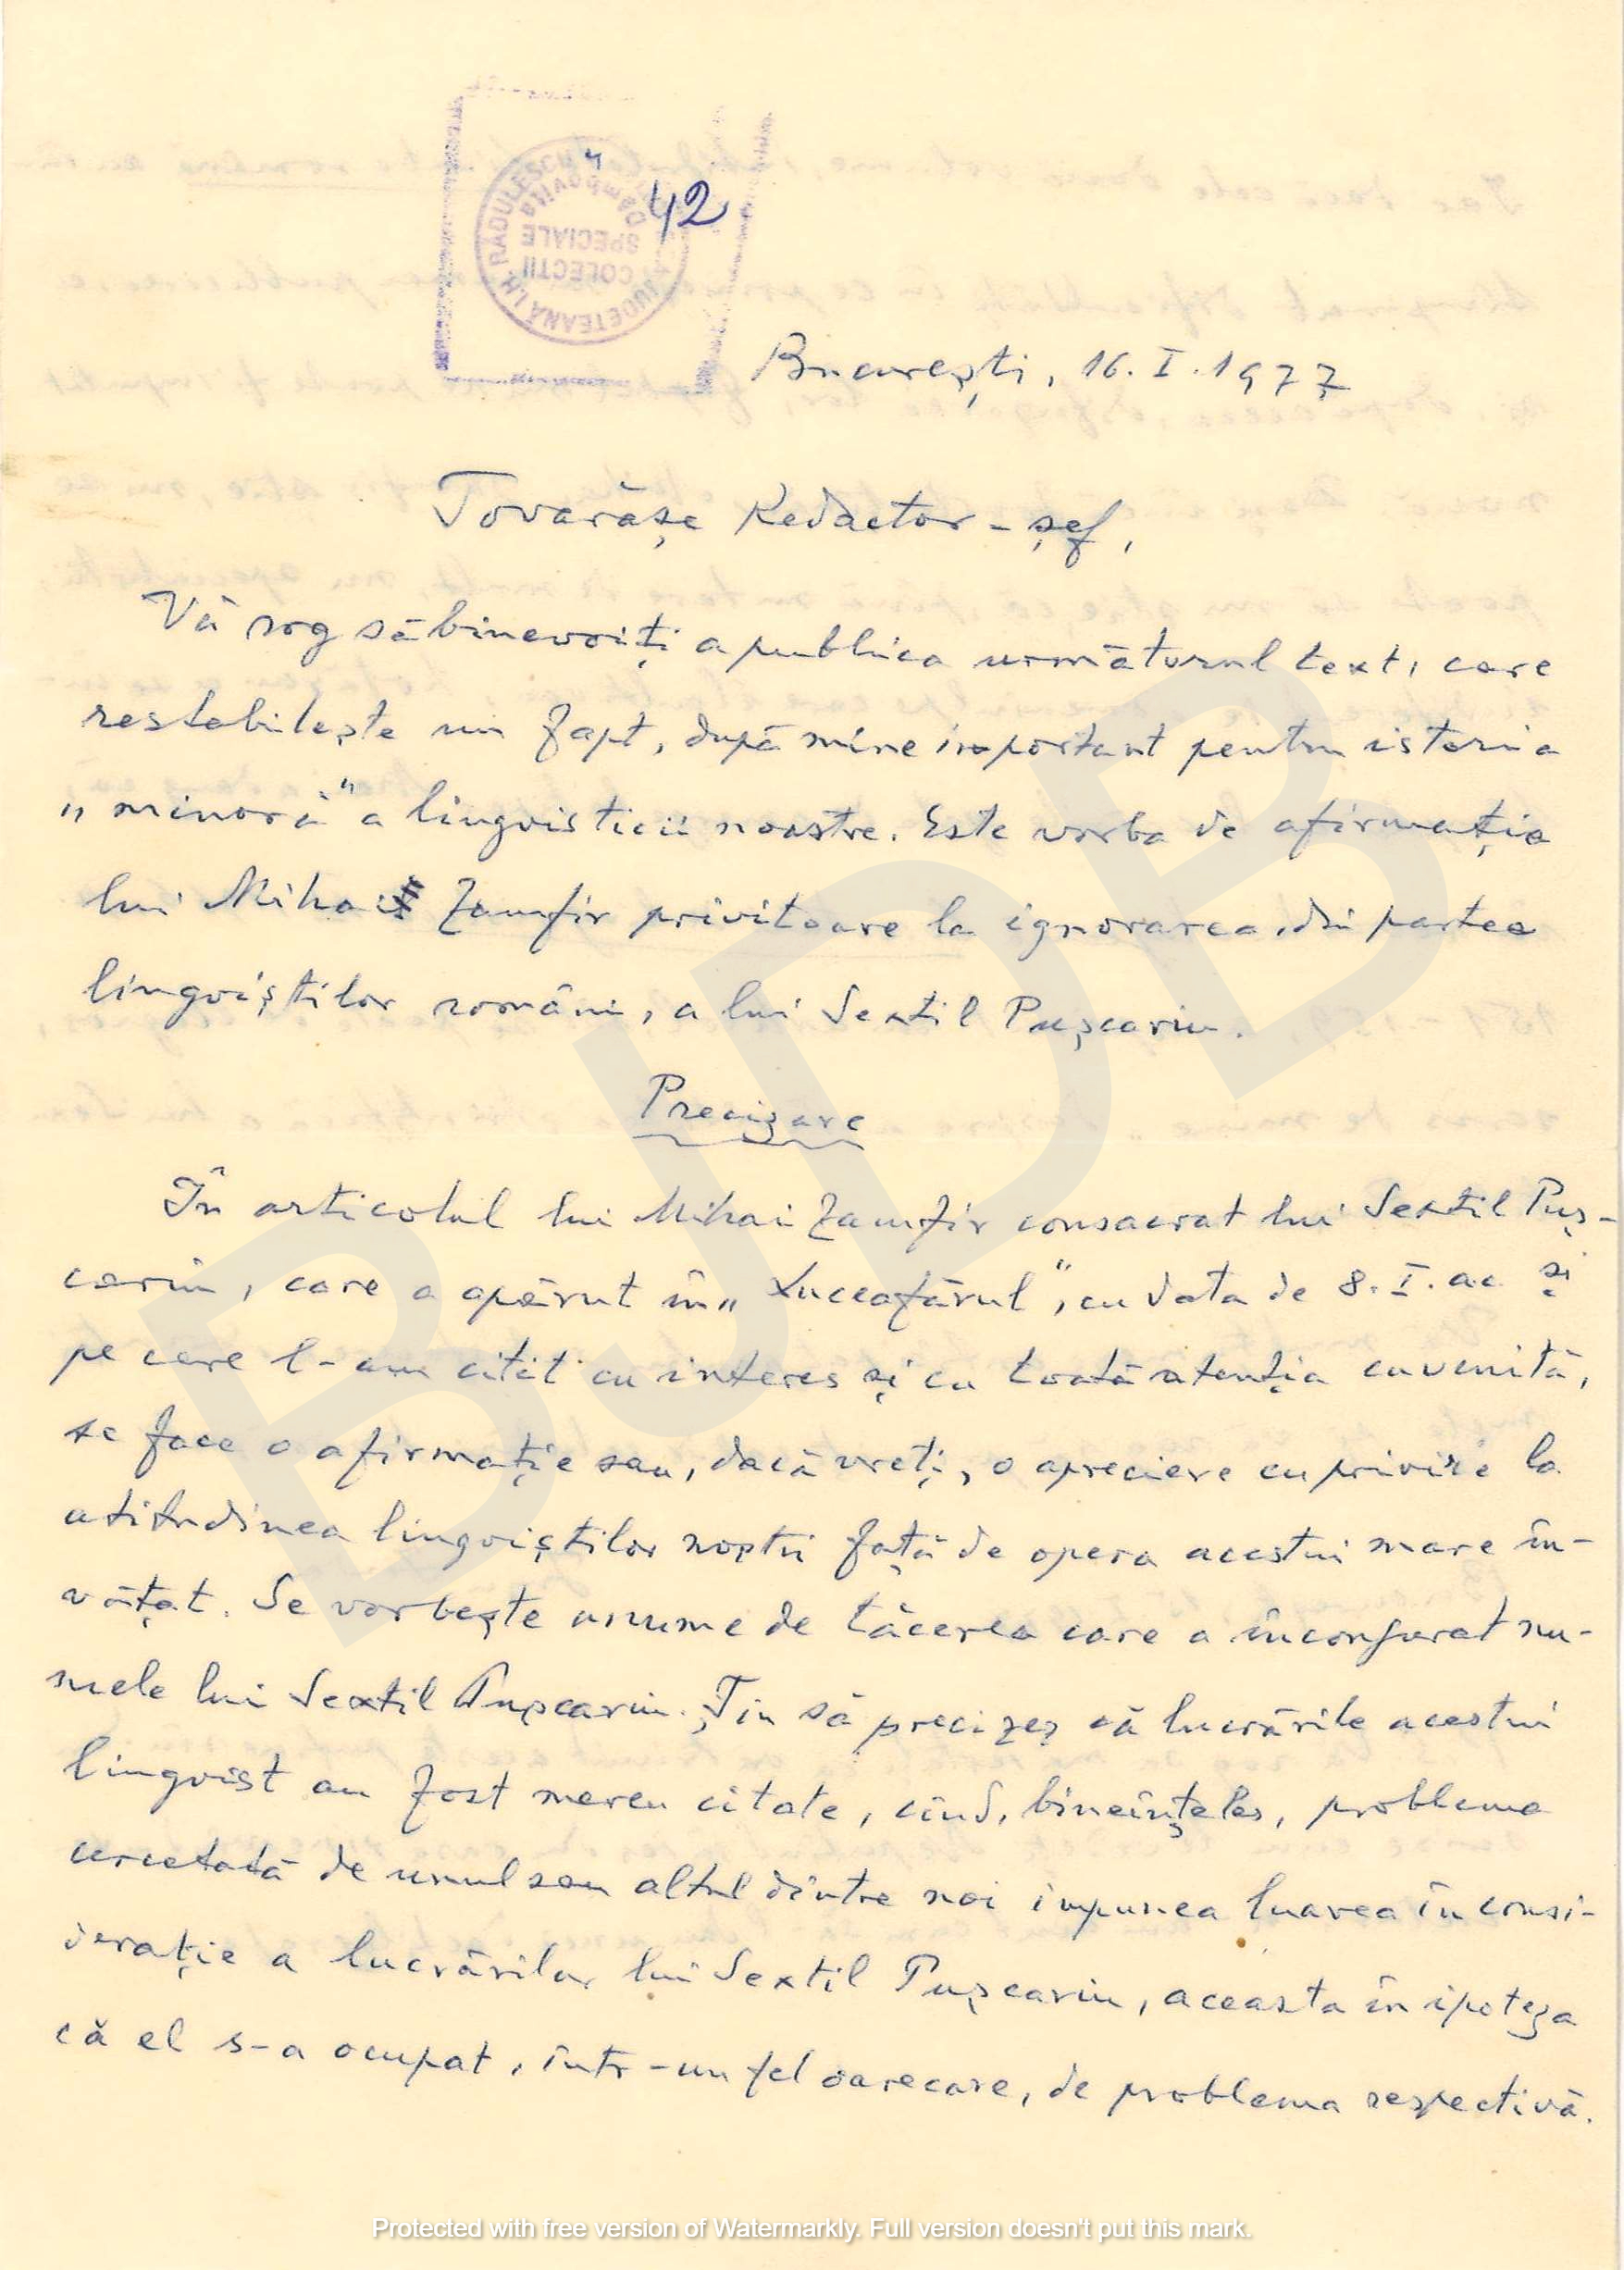 42
București, 16.I.1977
Tovarășe Redactor-șef,
Vă rog să binevoiți a publica următorul text, care
restabilește un fapt, după mine important pentru istoria
„minoră" a lingvisticii noastre. Este vorba de afirmația
lui Mihai Zamfir privitoare la ignorarea, din partea
lingviștilor români, a lui Sextil Pușcariu.
Precizare
În articolul lui Mihai Zamfir consacrat lui Sextil Puș-
cariu, care a apărut în „Luceafărul", cu data de 8.I. a.c. și
pe care l-am citit cu interes și cu toată atenția cuvenită,
se face o afirmație sau, dacă vreți, o apreciere cu privire la
atitudinea lingviștilor noștri față de opera acestui mare în-
vățat. Se vorbește anume de tăcerea care a înconjurat nu-
mele lui Sextil Pușcariu. Țin să precizez că lucrările acestui
lingvist au fost mereu citate, cînd, bineînțeles, problema
cercetată de unul sau altul dintre noi impunea luarea în consi-
derație a lucrărilor lui Sextil Pușcariu, aceasta în ipoteza
că el s-a ocupat, într-un fel oarecare, de problema respectivă.
BJDB
JUDEȚEANĂ I.H. RĂDULESCU
Dambovita
COLECTII
SPECIALE
Protected with free version of Watermarkly. Full version doesn't put this mark.